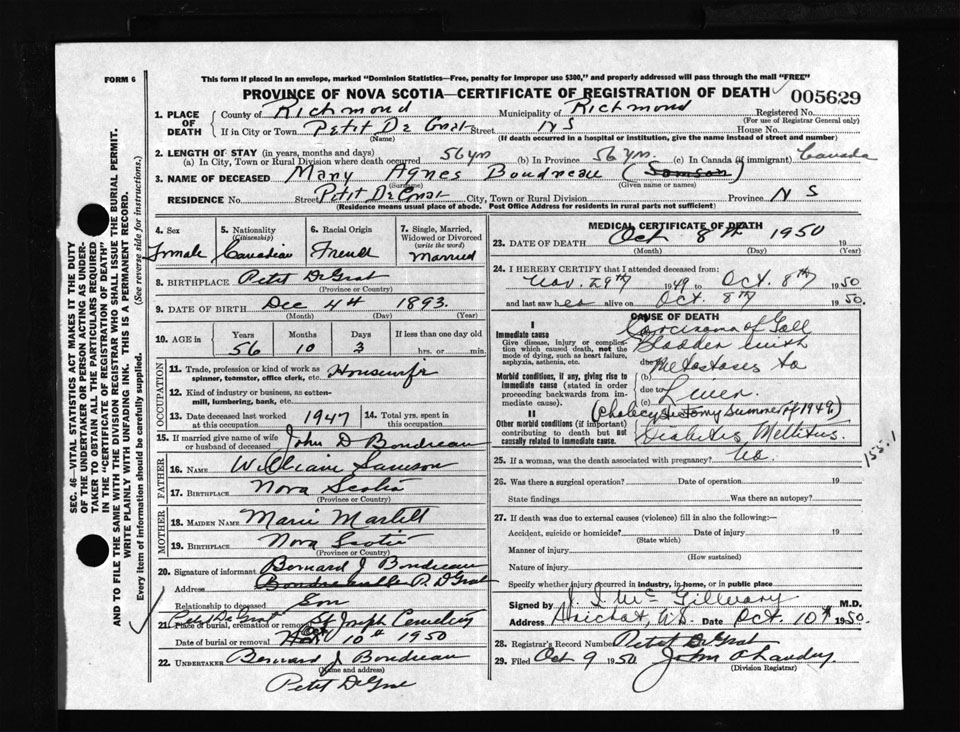 FORM 6
This form if placed in an envelope, marked "Dominion Statistics—Free, penalty for improper use $300," and properly addressed will pass through the mail "FREE"
PROVINCE OF NOVA SCOTIA—CERTIFICATE OF REGISTRATION OF DEATH 005629
1. PLACE OF DEATH
County of Richmond Municipality of Richmond Registered No.
(For use of Registrar General only)
If in City or Town Petit De Grat Street N S House No.
(Name) (If death occurred in a hospital or institution, give the name instead of street and number)
2. LENGTH OF STAY (in years, months and days)
(a) In City, Town or Rural Division where death occurred 56 yrs (b) In Province 56 yrs. (c) In Canada (if immigrant) Canada
3. NAME OF DECEASED Mary Agnes Boudreau (Samson)
(Surname) (Given name or names)
RESIDENCE No. Street Petit De Grat City, Town or Rural Division Province N S
(Residence means usual place of abode. Post Office Address for residents in rural parts not sufficient)
4. Sex Female
5. Nationality (Citizenship) Canadian
6. Racial Origin French
7. Single, Married, Widowed or Divorced (write the word) Married
8. BIRTHPLACE Petit De Grat
(Province or Country)
9. DATE OF BIRTH Dec 4th 1893.
(Month) (Day) (Year)
10. AGE in Years 56 Months 10 Days 3 If less than one day old hrs. or min.
OCCUPATION
11. Trade, profession or kind of work as spinner, teamster, office clerk, etc. Housewife
12. Kind of industry or business, as cotton-mill, lumbering, bank, etc.
13. Date deceased last worked at this occupation 1947
14. Total yrs. spent in this occupation
15. If married give name of wife or husband of deceased John D Boudreau
FATHER
16. NAME William Samson
17. BIRTHPLACE Nova Scotia
(Province or Country)
MOTHER
18. MAIDEN NAME Marie Martell
19. BIRTHPLACE Nova Scotia
(Province or Country)
20. Signature of informant Bernard J Boudreau
Address Boudreauville P. DGrat
Relationship to deceased Son
21. Place of burial, cremation or removal Petit De Grat St Joseph Cemetery
Date of burial or removal Oct 10th 1950
22. UNDERTAKER Bernard J Boudreau
(Name and address)
Petit De Grat
MEDICAL CERTIFICATE OF DEATH
23. DATE OF DEATH Oct 8th 1950 19
(Month) (Day) (Year)
24. I HEREBY CERTIFY that I attended deceased from:
Nov. 29th 1949 to Oct. 8th 1950
and last saw her alive on Oct. 8th 1950.
CAUSE OF DEATH
I
Immediate cause
Give disease, injury or complication which caused death, not the mode of dying, such as heart failure, asphyxia, asthenia, etc.
Carcinoma of Gall Bladder with
due to
Morbid conditions, if any, giving rise to immediate cause (stated in order proceeding backwards from immediate cause).
(b) Metastases to
due to Liver
(c)
(Cholecystectomy Summer of 1949)
II
Other morbid conditions (if important) contributing to death but not causally related to immediate cause.
Diabetes Mellitus.
155.1
25. If a woman, was the death associated with pregnancy? No.
26. Was there a surgical operation? Date of operation 19
State findings Was there an autopsy?
27. If death was due to external causes (violence) fill in also the following:
Accident, suicide or homicide? Date of injury 19
(State which)
Manner of injury
(How sustained)
Nature of injury
Specify whether injury occurred in industry, in home, or in public place
Signed by M.D.
Address Arichat, N.S. Date Oct. 10th 1950.
28. Registrar's Record Number Petit De Grat
29. Filed Oct 9 1950
(Division Registrar)
SEC. 46—VITAL STATISTICS ACT MAKES IT THE DUTY
OF THE UNDERTAKER OR PERSON ACTING AS UNDERTAKER TO OBTAIN ALL THE PARTICULARS REQUIRED
IN THE "CERTIFICATE OF REGISTRATION OF DEATH"
AND TO FILE THE SAME WITH THE DIVISION REGISTRAR WHO SHALL ISSUE THE BURIAL PERMIT.
WRITE PLAINLY WITH UNFADING INK. THIS IS A PERMANENT RECORD.
Every item of information should be carefully supplied. (See reverse side for instructions.)